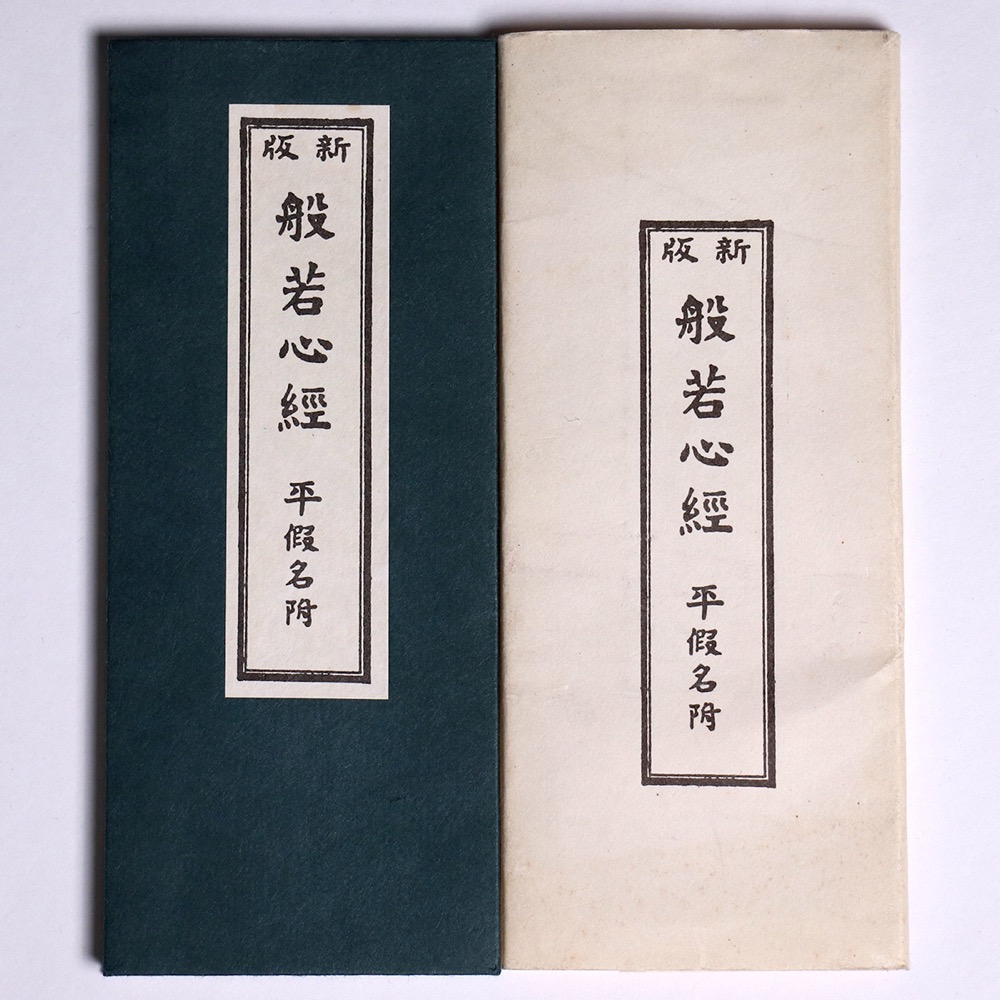 新版
般若心經
平假名附
新版
般若心經
平假名附